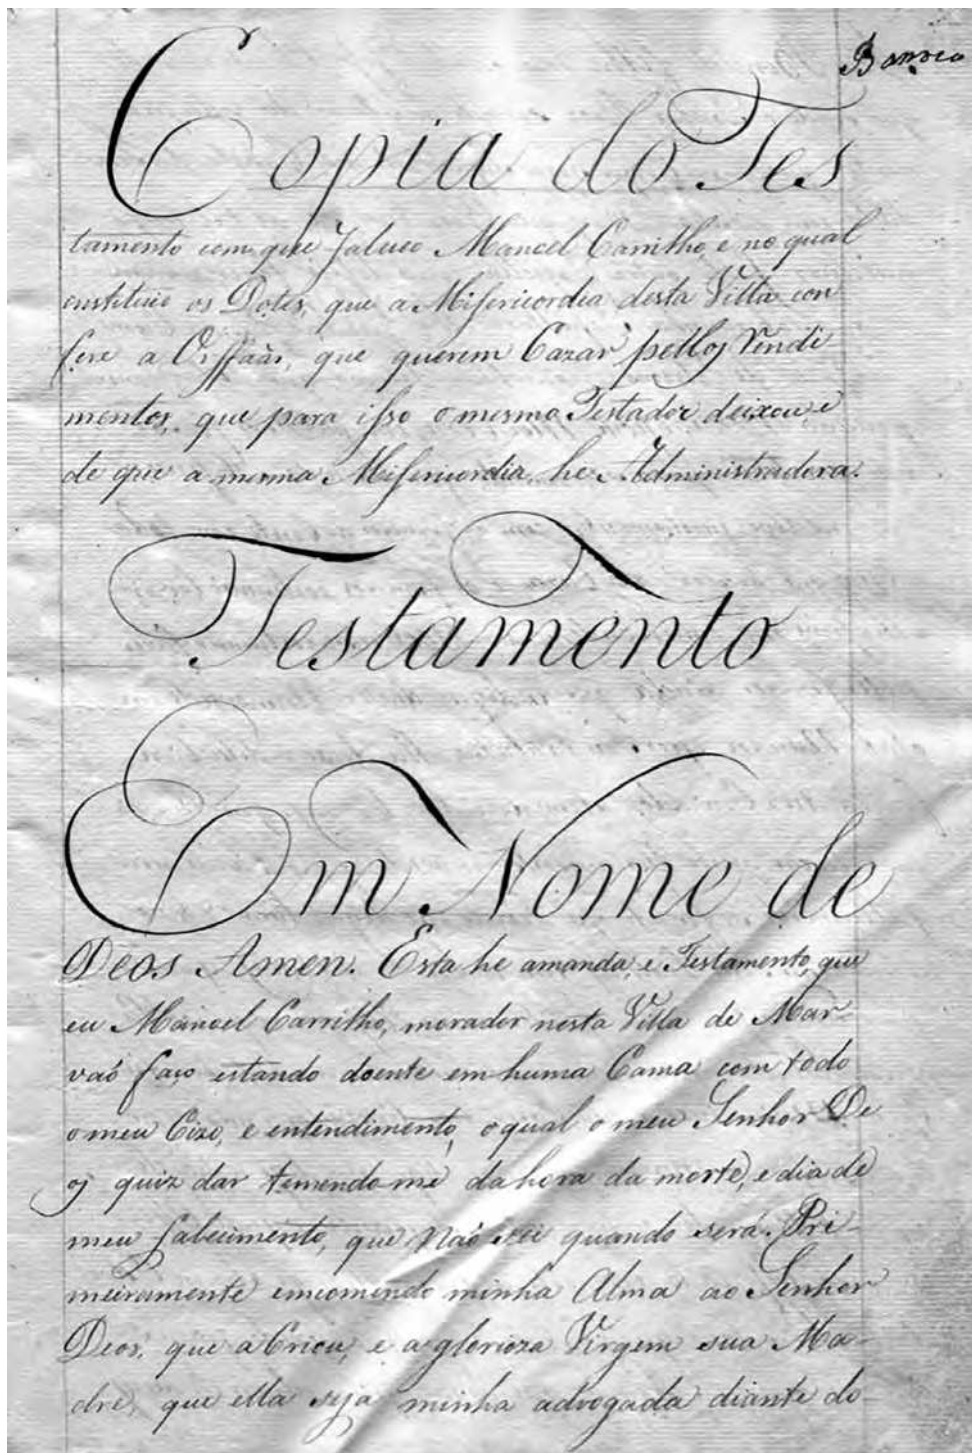 Copia do Tes
tamento com que Faleceo Manoel Carrilho, e no qual
enstituio os Dotes, que a Misericordia desta Villa con
fere a Orffaãs, que querem Cazar pellos Rendi
mentos, que para isso o mesmo Testador deixou, e
de que a mesma Misericordia, he Administradora.
Testamento
Em Nome de
Deos Amen. Esta he amanda, e Testamento, que
eu Manoel Carrilho, morador nesta Villa de Mar-
vaó faço estando doente em huma Cama com todo
o meu Cizo, e entendimento, o qual o meu Senhor De
os quiz dar temendo-me da hora da morte, e dia de
meu falecimento, que Naó sei quando será. Pri-
meiramente encomendo minha Alma ao Senhor
Deos, que a Criou, e a glorioza Virgem sua Ma-
dre, que ella seja minha advogada diante do-